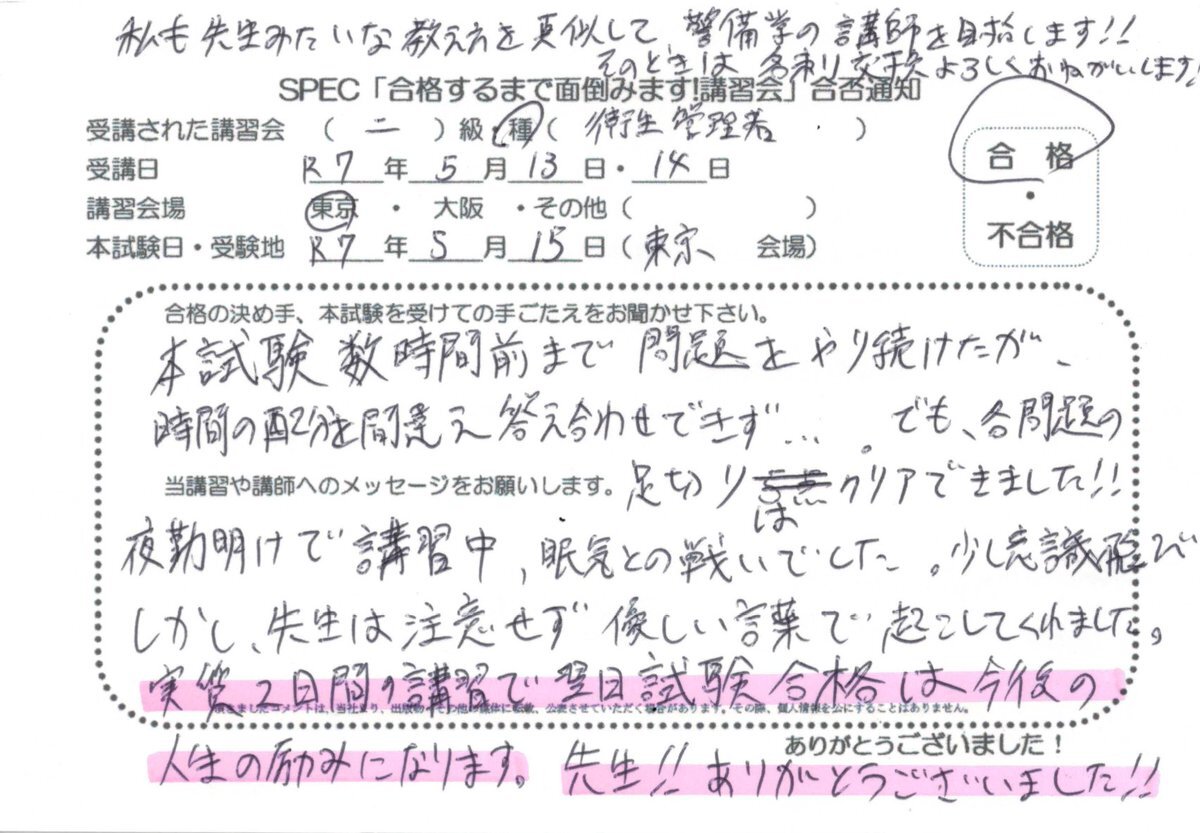 私も先生みたいな教え方を真似して 警備学の講師を目指します!!
そのときは名刺り交換よろしくおねがいします!
SPEC「合格するまで面倒みます!講習会」合否通知
受講された講習会 （ 二 ）級・種（ 衛生管理者 ）
合 格
受講日 R7年5月13日・14日
・
講習会場 東京 ・ 大阪 ・その他（ ）
不合格
本試験日・受験地 R7年5月15日（東京 会場）
合格の決め手、本試験を受けての手ごたえをお聞かせ下さい。
本試験数時間前まで問題をやり続けたが、
時間の配分を間違え答え合わせできず…。でも、各問題の
当講習や講師へのメッセージをお願いします。
足切りはクリアできました!!
夜勤明けで講習中、眠気との戦いでした。少し意識飛び
しかし、先生は注意せず優しい言葉で起こしてくれました。
実質2日間の講習で翌日試験合格は今後の
コメントは、当社より、出版の その他の媒体に転載、公表させていただく場合があります。その際、個人情報を公にすることはありません。
ありがとうございました！
人生の励みになります。先生!!ありがとうございました!!